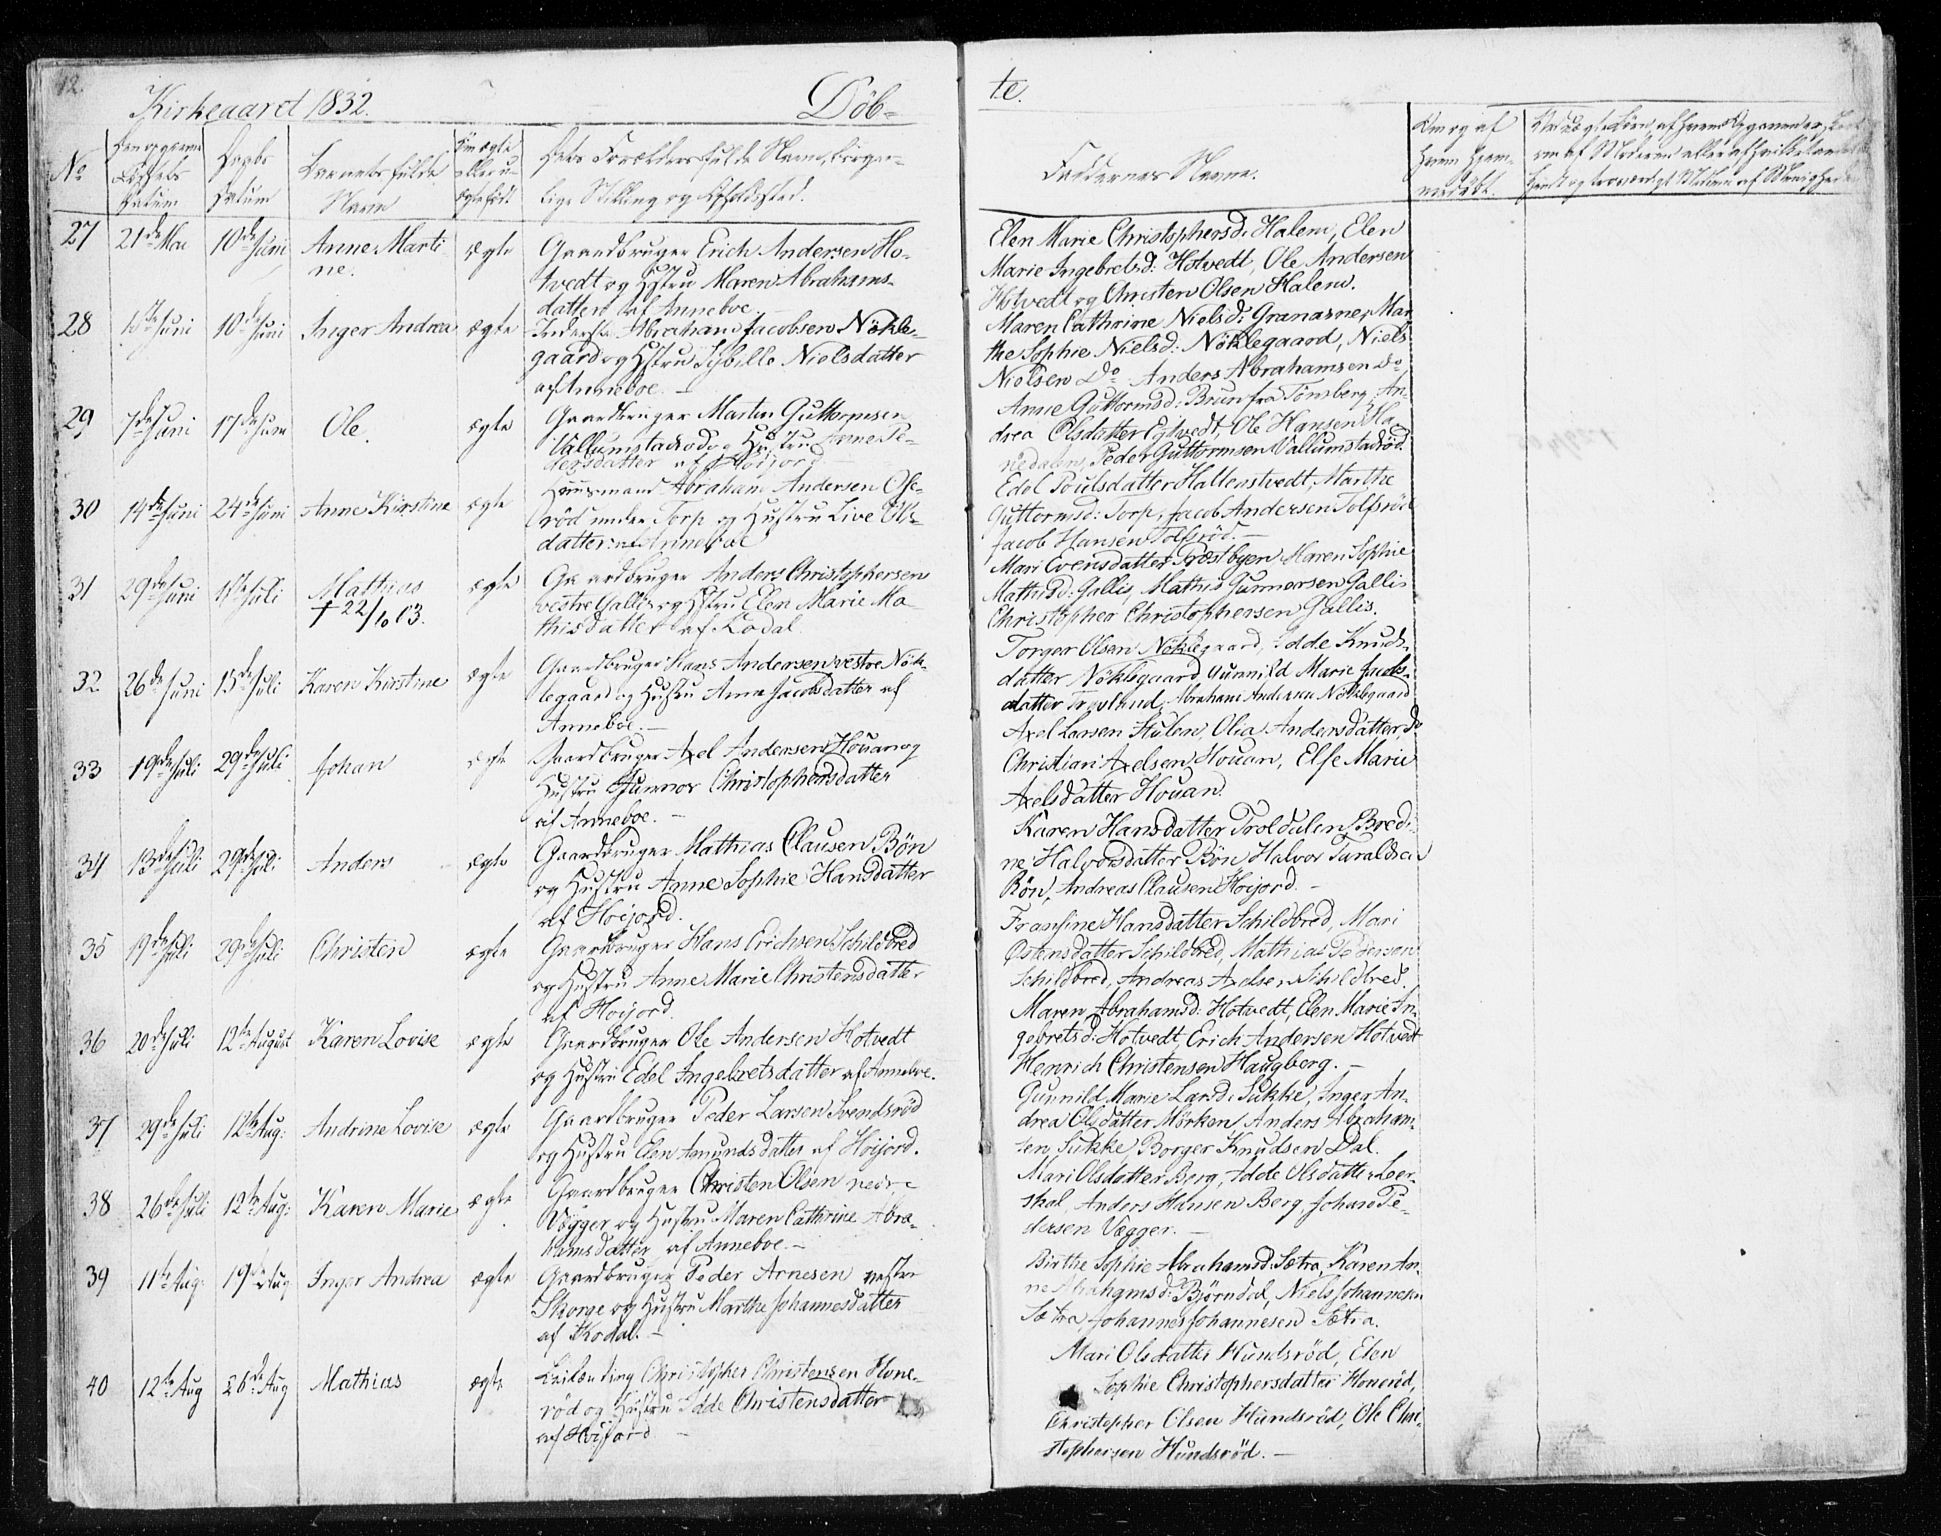 12.
Kirkeaaret 1832.
Döb-
te.
No
Barnets fulde
Navn
Datum
Datum
Faddernes Navne.
27 21de Mai 10de Juni Anne Marti
ne.
ægte
Gaardbruger Erich Andersen Ho-
tvedt og Hstru Maren Abrahams-
datter af Anneboe
Elen Marie Christophersd: Halem, Elen
Marie Ingebretsd: Hotvedt, Ole Andersen
Hotvedt og Christen Olsen Halem.
28 Juni 10de Juni Inger Andrea ægte
Inderst Abraham Jacobsen Nökle-
gaard og Hstru Sybille Nielsdatter
af Anneboe. –
Maren Cathrine Nielsd: Granasnes, Mar
the Sophie Nielsd: Nöklegaard, Niels
Nielsen Do Anders Abrahamsen Do
29 7de Juni 17de Juni Ole. ægte
Gaardbruger Martin Guttormsen
Vallumstadröd og Hustru Anne Pe-
dersdatter af Höijord
Anne Guttormsd: Brun fra Tönsberg, An-
drea Olsdatter Egtvedt, Ole Hansen Ha-
nedalen, Peder Guttormsen Vallumstadröd.
30 14de Juni 24de Juni Anne Kirstine ægte
Huusmand Abraham Andersen Ose-
röd under Torp og Hustru Live Ols-
datter af Anneboe
Edel Poulsdatter Hallenstvedt, Marthe
Guttormsd: Torp, Jacob Andersen Tolfsröd
Jacob Hansen Tolfsröd. –
31 29de Juni Juli Mathias
† 22/10 03.
ægte
Gaardbruger Anders Christophersen
vestre Gallis og Hstru Elen Marie Ma
thisdatter af Kodal.
Mari Evensdatter Præstbyen Maren Sophie
Mathisd: Gallis, Mathis Gunnarsen Gallis
Christopher Christophersen Gallis.
32 26de Juni 15de Juli Karen Kirstine ægte
Gaardbruger Hans Andersen vestre Nök-
legaard og Hustru Anne Jacobsdatter af
Anneboe. –
Torger Olsen Nöklegaard, Idde Knuds-
datter Nöklegaard Gunnild Marie Jacobs-
datter Trovland, Abraham Andersen Nöklegaard
33 19de Juli 29de Juli Johan ægte
Gaardbruger Axel Andersen Houan og
Hustru Gunnor Christophersdatter
af Anneboe. –
Axel Larsen Hulen, Olia Andersdatter, Do
Christian Axelsen Houan, Else Marie
Axelsdatter Houan.
34 13de Juli 29de Juli Anders ægte
Gaardbruger Mathias Clausen Bön
og Hustru Anne Sophie Hansdatter
af Höijord.
Karen Hansdatter Troldalen, Bredi-
ne Halvorsdatter Bön Halvor Taraldsen
Bön, Andreas Clausen Höijord. –
35 19de Juli 29de Juli Christen ægte
Gaardbruger Hans Erichsen Schildbred
og Hustru Anne Marie Christensdatter
af Höijord.
Fransine Hansdatter Schildbred, Mari
Östensdatter Schildbred, Mathias Pedersen
Schildbred, Andreas Axelsen Schildbred.
36 20de Juli 12te August Karen Lovise ægte
Gaardbruger Ole Andersen Hotvedt
og Hustru Edel Ingebretsdatter af Anneboe.
Maren Abrahamsd: Hotvedt, Elen Marie In-
gebretsd: Hotvedt, Erich Andersen Hotvedt
Henrich Christensen Haugberg. –
37 29de Juli 12te Aug: Andrine Lovise ægte
Gaardbruger Peder Larsen Svendsröd
og Hustru Elen Amundsdatter af Höijord.
Gunnild Marie Larsd: Sukke, Inger An-
drea Olsdatter Mörken, Anders Abraham-
sen, Sukke, Borger Knudsen Dal.
38 26de Juli 12te Aug: Karen Marie ægte
Gaardbruger Christen Olsen nedre
Vægger og Hustru Maren Cathrine Abra-
hamsdatter af Anneboe. –
Mari Olsdatter Berg, Idde Olsdatter Leer-
skal, Anders Hansen Berg, Johan Pe-
dersen Vægger. –
39 11te Aug: 19de Aug Inger Andrea ægte
Gaardbruger Peder Arnesen vestre
Skorge og Hustru Marthe Johannesdatter
af Kodal. –
Birthe Sophie Abrahamsd: Sætra, Karen An-
ne Abrahamsd: Björndal, Niels Johannesen
Sætra, Johannes Johannesen Sætra.
40 12te Aug 26de Aug Mathias ægte
Leilænding Christopher Christensen Hone-
röd og Hustru Idde Christensdatter
af Höijord –
Mari Olsdatter Hundsröd, Elen
Sophie Christophersdatter Honeröd,
Christopher Olsen Hundsröd, Ole Chri-
stophersen Hundsröd. –